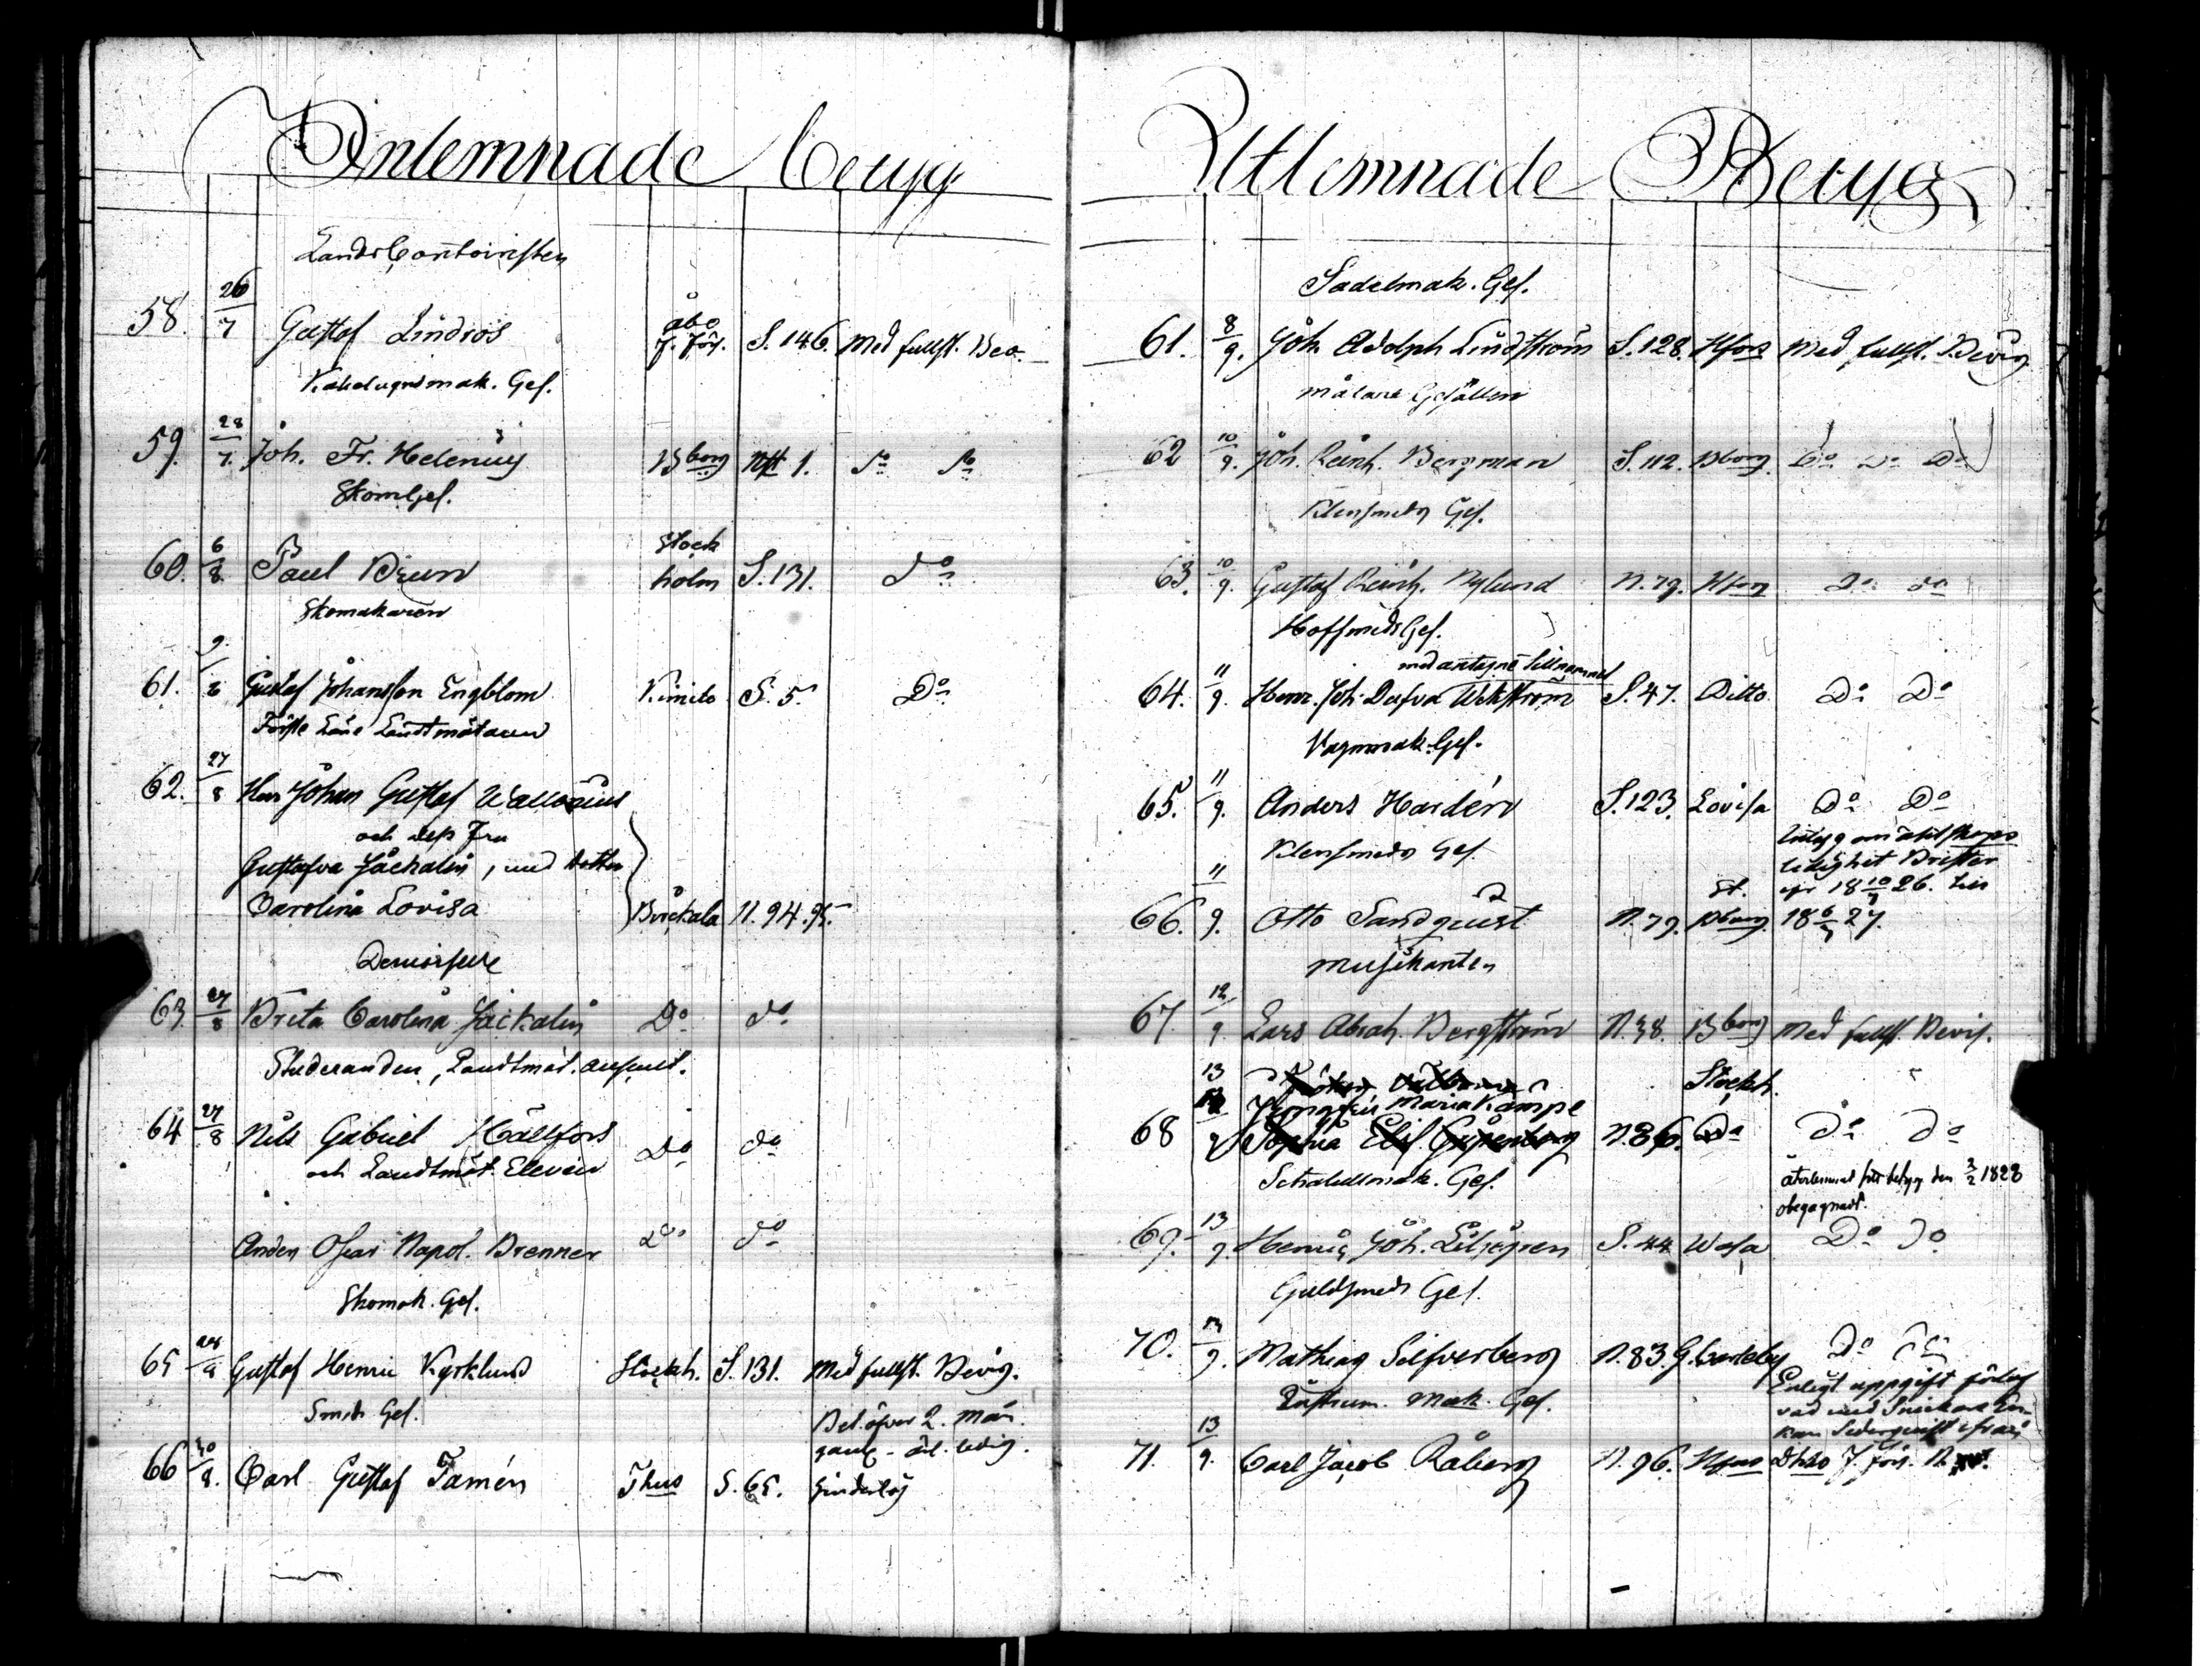 Inlemnade betyg
LandsContoiristen
58. 26/7 Gustaf Lindros Åbo f. förs. S. 146. Med fullst. Bev.
Kakelugnsmak. Gef.
59. 28/7 Joh. Fr. Helenius Bborg Ntt 1. Do Do
SkomGef.
60. 6/8 Paul Brun Stock
holm S. 131. Do
Skomakaren
61. 9/8 Gustaf Johansson Engblom Kimito S. 5. Do
Förste Låne Landtmätaren
62. 27/8 Herr Johan Gustaf Wallenius
och dess Fru
Gustafva Jäckalin, med dotter
Carolina Lovisa Birckala N. 94. 95.
Demoiselle
63. 27/8 Brita Carolina Jäckalin Do do
Studeranden, Landtmät. auscult.
64 27/8 Nils Gabriel Hällfors Do do
och Landtmät. Eleven
Anders Oscar Napol. Brenner Do do
Skomak. Gef.
65 28/8 Gustaf Henric Kyrklund Stockh. S. 131. Med fullst. Bevis.
Smeds Gef.
Bet. öfver 2. män.
66 30/8. Carl Gustaf Tamén Fhus S. 65.
Utlemnade Betyg
Sadelmak. Gef.
61. 8/9. Joh. Adolph Lindström S. 128. Hfors Med fullst. Bevis
Målare Gesällen
62 10/9. Joh. Reinh. Bergman S. 112. Bborg. Do Do Do
Klensmeds Gef.
63. 10/9. Gustaf Reinh. Nylund N. 79. Hfors Do do
HofsmedsGef.
med antagne tillnamnet
64. 11/9. Henr. Joh. Dufva Wikström S. 47. Ditto Do Do
Vagnmak. Gef.
65. 11/9. Anders Hardén S. 123. Lovisa Do Do
Klensmeds Gef.
66. 11/9. Otto Sandquist N. 79. St. Pburg. 18 10/7 26. till
18 6/7 27.
Musikanten
67. 12/9 Lars Abrah. Bergström N. 38. Bborg Med fullst. Bevis.
Stockh.
68 13/9 Jungfru Maria Kämpe N. 86. Do Do
Sophia Elis.
Schatullmak. Gef.
återlemnat sitt betyg den 2/2 1828
obegagnadt.
69. 13/9. Henric Joh. Liljegren S. 44 Wasa Do Do
Guldsmeds Gef.
70. 13/9. Mathias Silfverberg N. 83. G. Carleby Do Do
Instrum. Mak. Gef.
Enligt uppgift förlof
vad med
71. 13/9. Carl Jacob Råberg N. 96. Hfors